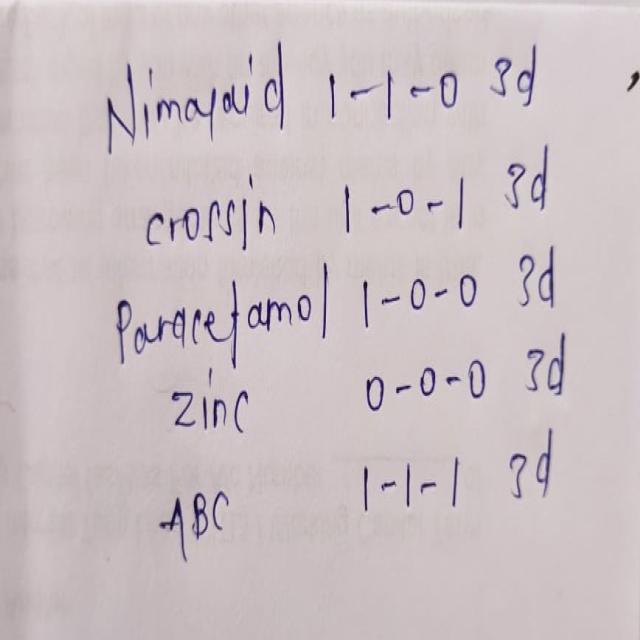 Nimapaid 1-1-0 3d
crossin 1-0-1 3d
Paracetamol 1-0-0 3d
zinc 0-0-0 3d
ABC 1-1-1 3d